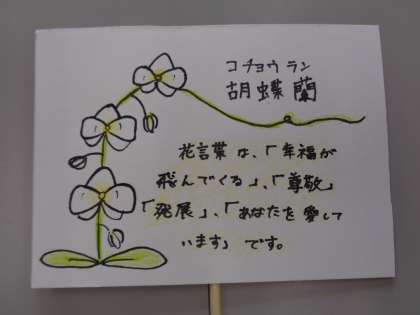 コチョウラン
胡蝶蘭
花言葉は、「幸福が
飛んでくる」、「尊敬」
「発展」、「あなたを愛して
います」です。